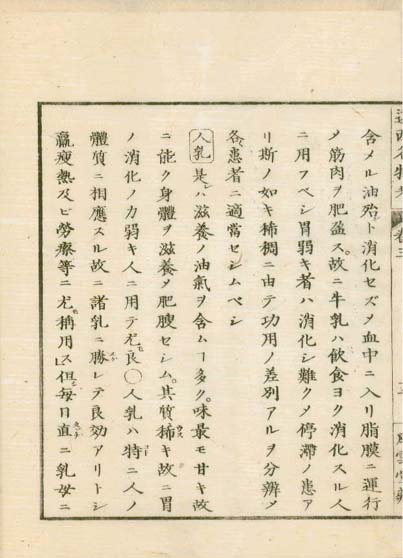 含メル油殆ト消化セズメ血中ニ入リ脂膜ニ運行
メ筋肉ヲ肥盈ス。故ニ牛乳ハ飲食ヨク消化スル人
ニ用フベシ胃弱キ者ハ消化シ難クメ停滞ノ患ア
リ斯ノ如キ稀稠ニ由テ功用ノ差別アルヲ分辨メ
各患者ニ適當セシムベシ
人乳 是レハ滋養ノ油氣ヲ含ムヿ多ク。味最モ甘キ故
ニ能ク身體ヲ滋養メ肥腴セシム。其質稀キ故ニ胃
ノ消化ノ力弱キ人ニ用テ尤モ良〇人乳ハ特ニ人ノ
體質ニ相應スル故ニ諸乳ニ勝レテ良効アリトシ
羸瘦熱及ヒ勞瘵等ニ尤モ稱用ス但シ毎日直ニ乳母ニ